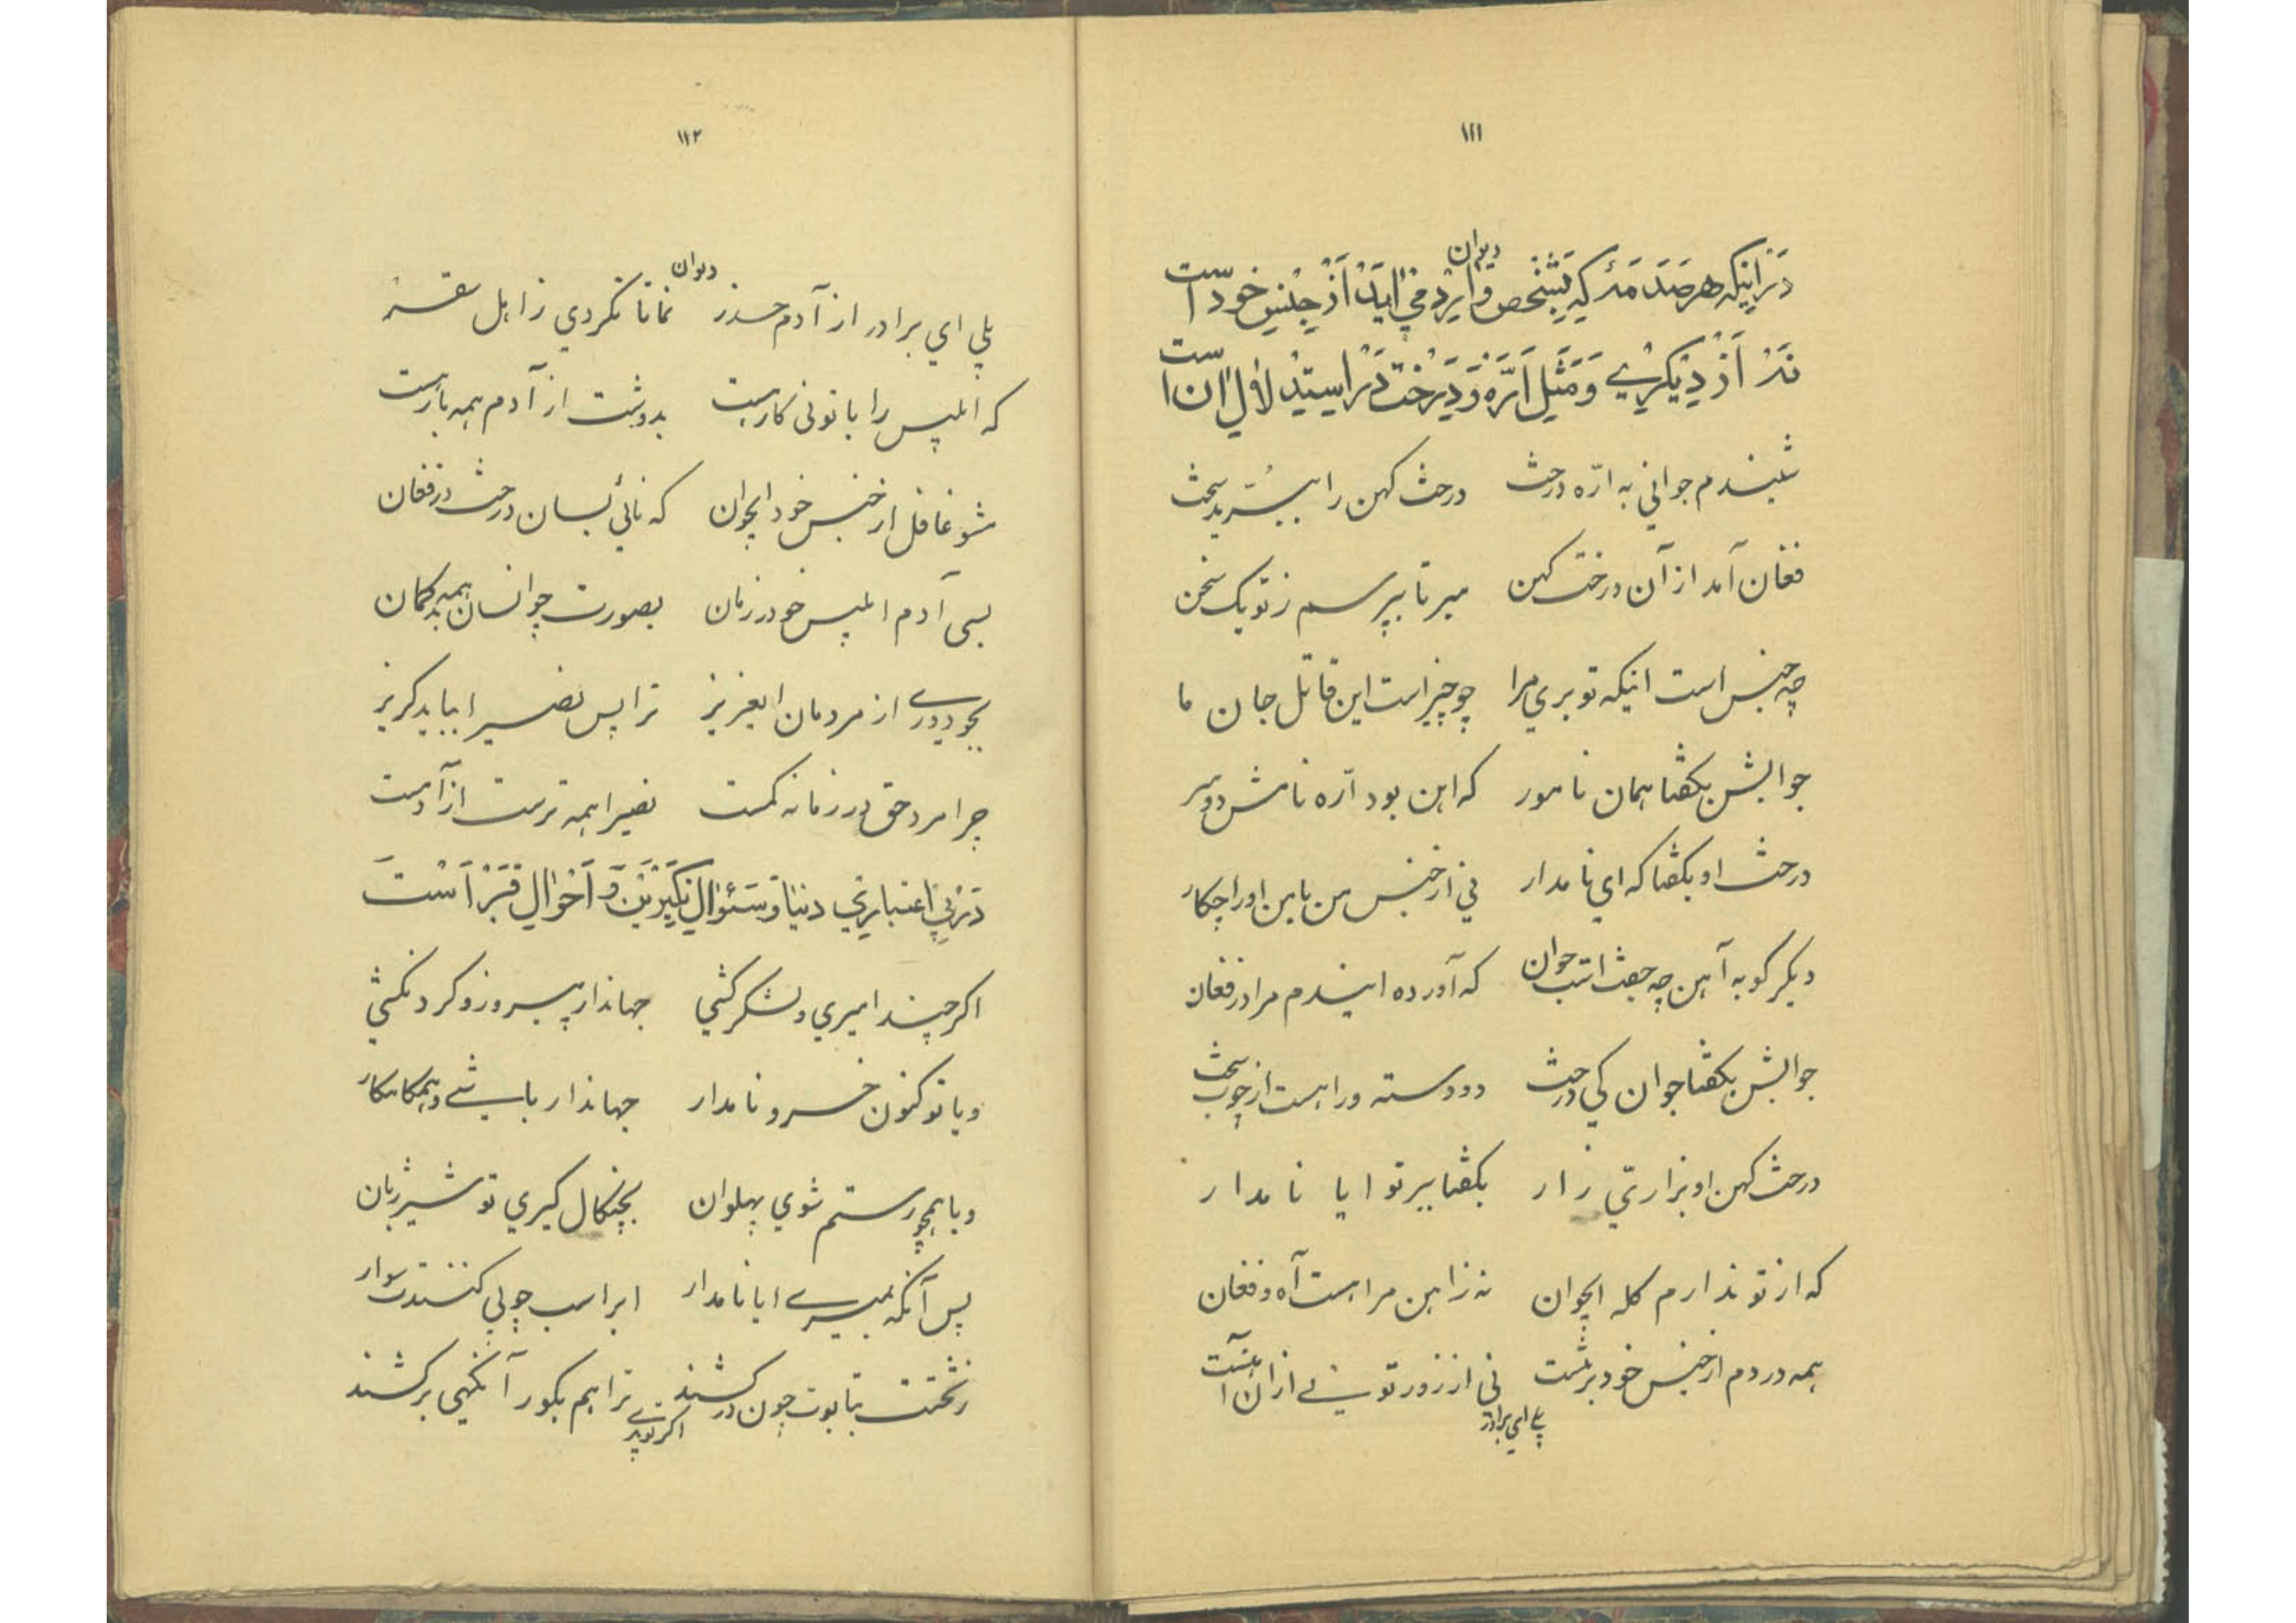 ١١١
دیوان
در اینکه هر صدمه که بشخص وارد می آید از جنس خود است
نه از دیگری و مثل اره و درخت در استدلال آن است
شنیدم جواني به ارّه درخث درخث کهن را ببُرّید سخث
فغان آمد از آن درخت کهن مبر تا بپرسم ز تو یک سخن
چه جنس است اینکه تو بري مرا چو چیز است این قاتل جان ما
جوابش بکفثا همان نامور که این بود ارّه نامش دو سر
درخث او بکفثا که اي نامدار ني از جنس من با من او را چکار
دیکر کو به آهن چه جفث است جوان که آورده ایندم مرا در فغان
جوابش بکفثا جوان کي درخث دو دسته ورا هست از چوب سخث
درخث کهن او بزاريّ زار بکفثا ببر تو ایا نامدار
که از تو ندارم کله ایجوان نه زاهن مرا هست آه و فغان
همه دردم از جنس خود برمنست ني از زور تو نے از ان آهنست
پلے اي برادر
١١٢
دیوان
پلي اي برادر از آدم حذر نمانا نکردي ز اهل سقر
که ابلیس را با تو ني کارهست بدوشت از آدم همه بارهست
مشو غافل از جنس خود ایجوان که نائي بسان درخث در فغان
بسی آدم ابلیس خو در زمان بصورت چو انسان همه بدکمان
بجو دورے از مردمان ایعزیز ترا پس نصیرا بباید کریز
چرا مرد حق در زمانه کمست نصیرا همه ترست از آدمست
در بي اعتباري دنیا و سئوال نکیرین و احوال قبر است
اکر چند امیري و لشکر کثي جهاندار پیروز و کردنکثي
ویا تو کنون خسرو نامدار جهاندار باشے و همکامکار
ویا همچو رستم ثوي پهلوان بچنکال کیري تو شیر ژیان
پس آنکه بمیرے ایا نامدار ابر اسب چوبي کنندت سوار
ز تختت بتابوت چون درکشند ترا هم بکور آنکهی برکشند
اکر توپرے